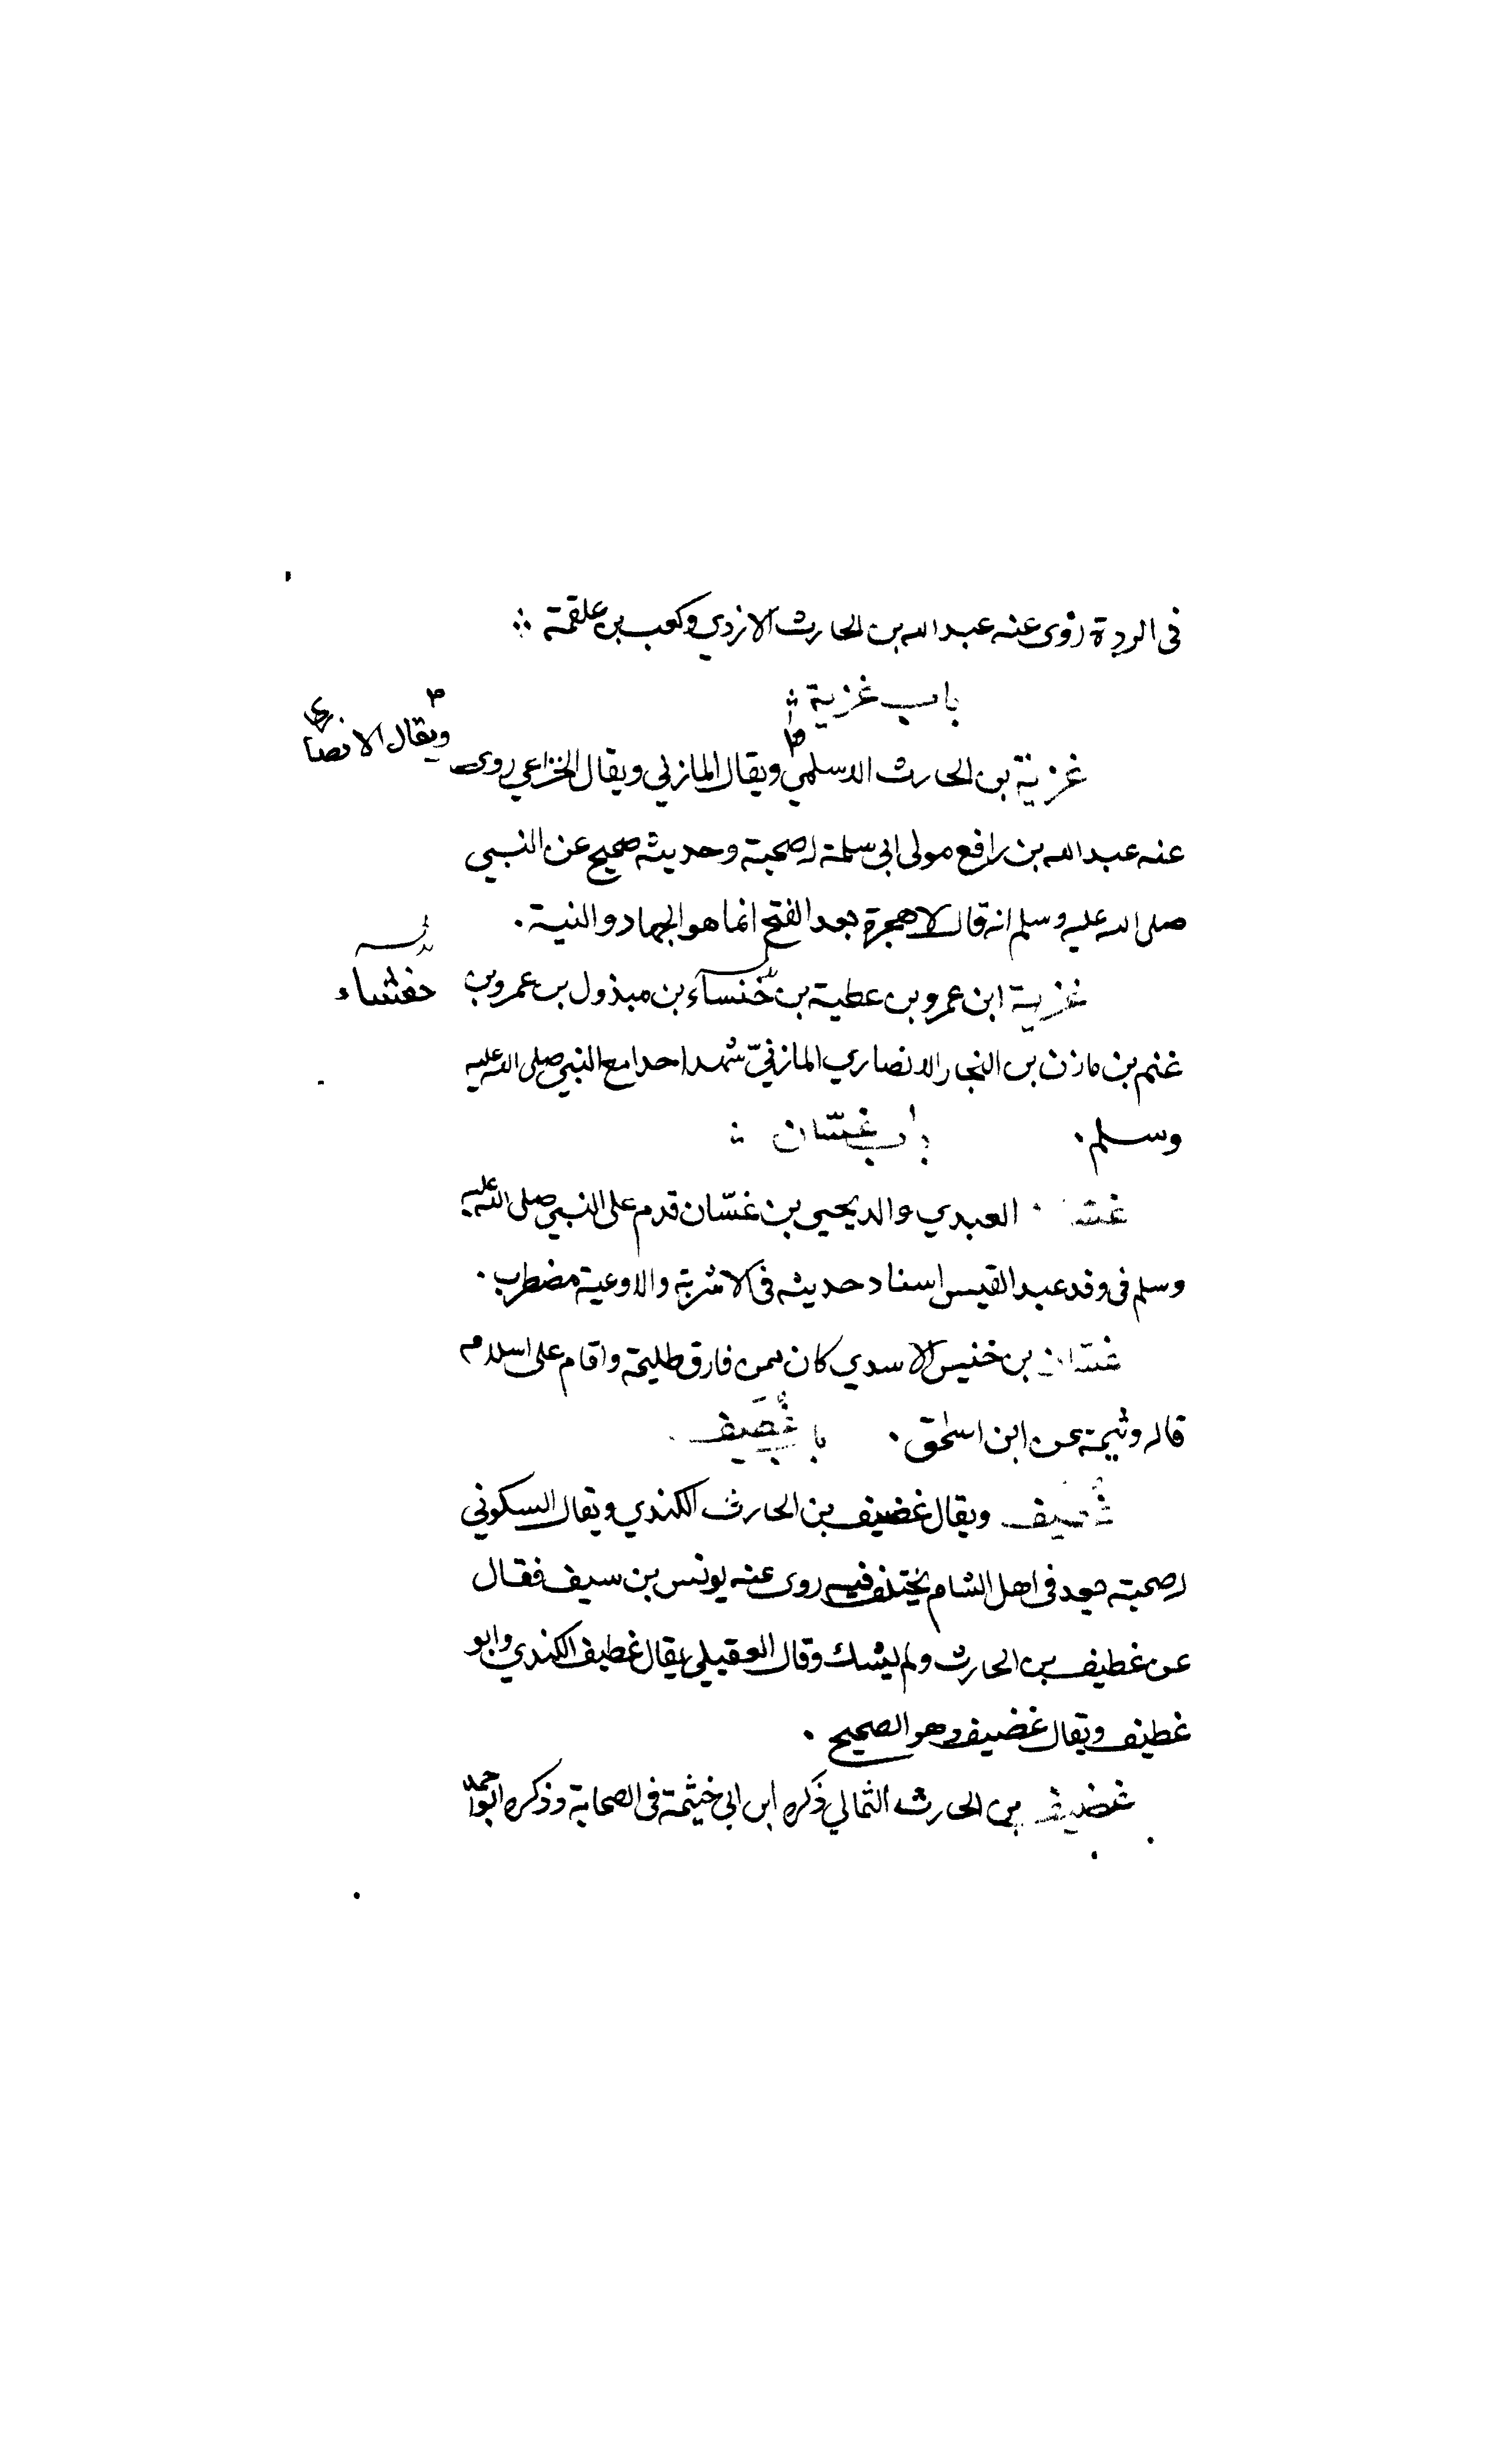 في الردة روى عنه عبد الله بن الحارث الازدي وكعب بن علقمة ∴
باب غزية ∴
غزية بن الحارث الاسلمي ويقال المازني ويقال الخزاعي روى
ويقال الانصاري
عنه عبد الله بن رافع مولى ابي سلمة له صحبة وحديثه صحيح عن النبي
صلى الله عليه وسلم انه قال لا هجرة بعد الفتح انما هو الجهاد والنية .
غزية ابن عمرو بن عطية بن خنساء بن مبذول بن عمرو بن
خنساء
غنم بن مازن بن النجار الانصاري المازنيّ شهد احدا مع النبي صلى الله عليه
وسلم . باب غسّان ∴
غسان العبدي والد يحيى بن غسّان قدم على النبي صلى الله عليه
وسلم في وفد عبد القيس اسناد حديثه في الاشربة والاوعية مضطرب .
غسّان بن خنيس الاسدي كان ممن فارق طليحة واقام على اسلامه
قاله وثيمة عن ابن اسحق . باب غُضَيف
غُضَيف ويقال غضيف بن الحارث الكندي ويقال السكوني
له صحبة يعد في اهل الشام يختلف فيه روى عنه يونس بن سيف فقال
عن غطيف بن الحارث ولم يشك وقال العقيلي يقال غطيف الكندي وابو
غطيف ويقال غضيف وهو الصحيح .
غضيف بن الحارث الثمالي ذكره ابن ابي خيثمة في الصحابة وذكره ابو احمد